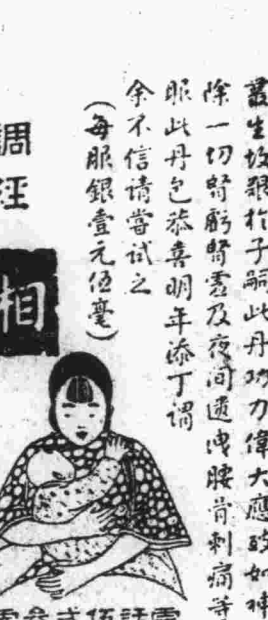 叢生故艱於子嗣此丹功力偉大應效如神
除一切腎虧腎寒及夜間遺洩腰骨刺痛等
服此丹包恭喜明年添丁謂
余不信请嘗试之
(每服銀壹元伍毫)
調經
相
電話伍弍叁零